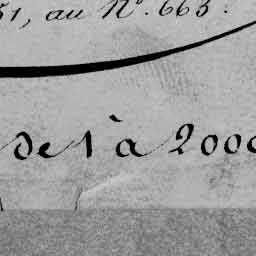 51, au N°. 663.
de 1 à 2000